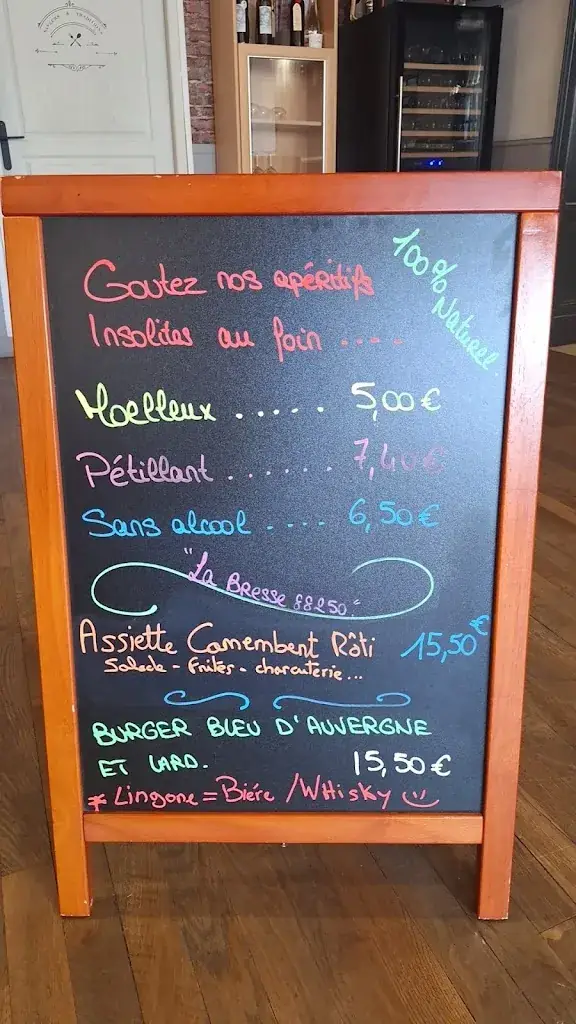 Goutez nos apéritifs
Insolites au foin ....
100% Naturel.
Moelleux ...... 5,00 €
Pétillant ...... 7,40 €
Sans alcool .... 6,50 €
"La Bresse 88250."
Assiette Camembert Rôti 15,50 €
Salade - Frites - charcuterie...
BURGER BLEU D'AUVERGNE
ET LARD. 15,50 €
* Lingone = Biére / WHisky